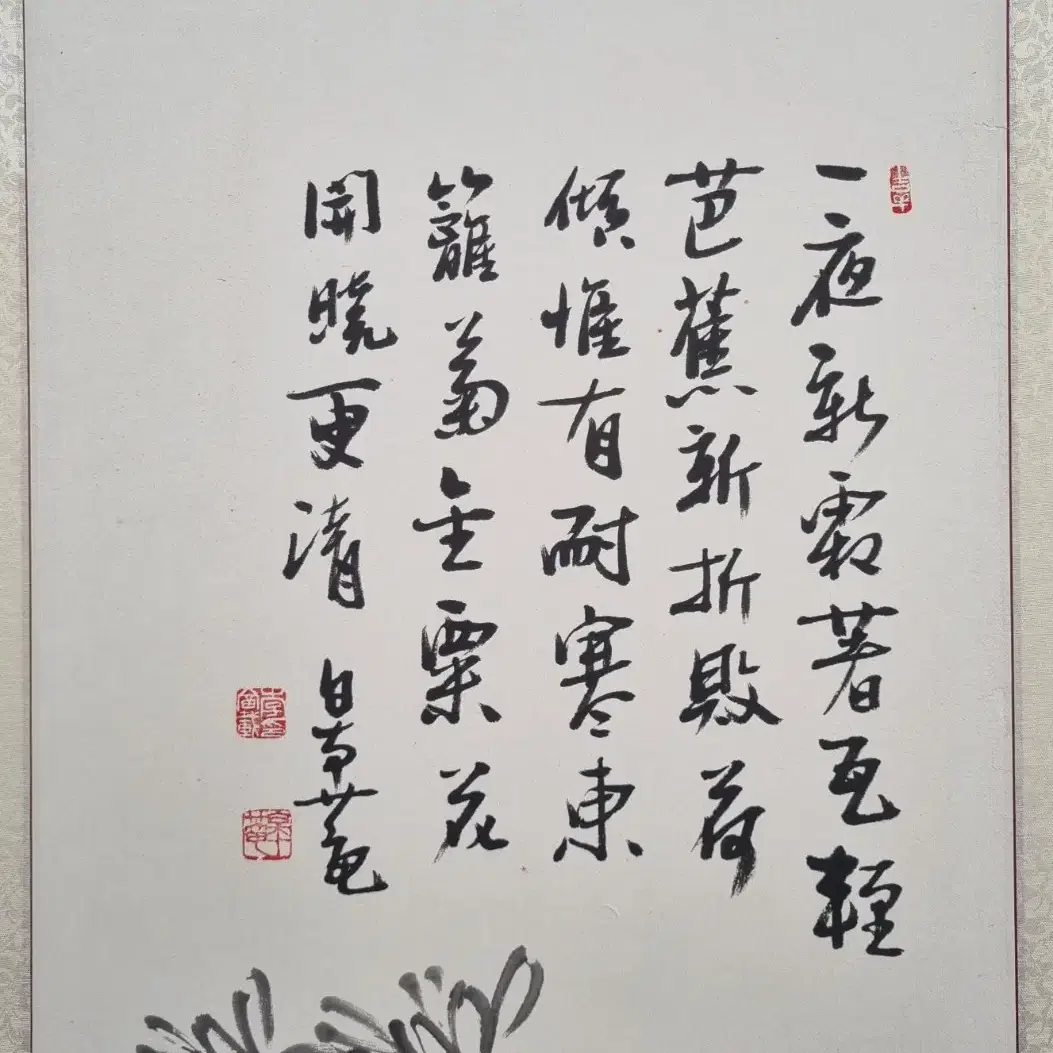 一夜新霜著瓦輕
芭蕉新折敗荷
傾惟有耐寒東
籬菊金粟花
開曉更清